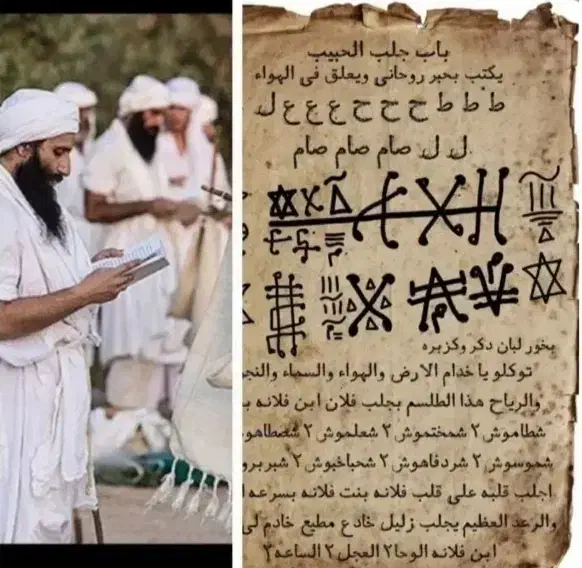 باب جلب الحبيب
يكتب بحبر روحاني ويعلق في الهواء
ط ط ط ح ح ح ع ع ع ل
ل ل صام صام صام
بخور لبان دكر وكزبره
توكلو يا خدام الارض والهواء والسماء والنج
والرياح هذا الطلسم بجلب فلان ابن فلانه ب
شطاموش ٢ شمختموش ٢ شعلموش ٢
شموسوش ٢ شردفاهوش ٢ شحباخبوش ٢ شبربرو
اجلب قلبه على قلب فلانه بنت فلانه بسرعه ا
والرعد العظيم يجلب زليل خادع مطيع خادم لى
ابن فلانه الوحا٢ العجل ٢ الساعه ٢